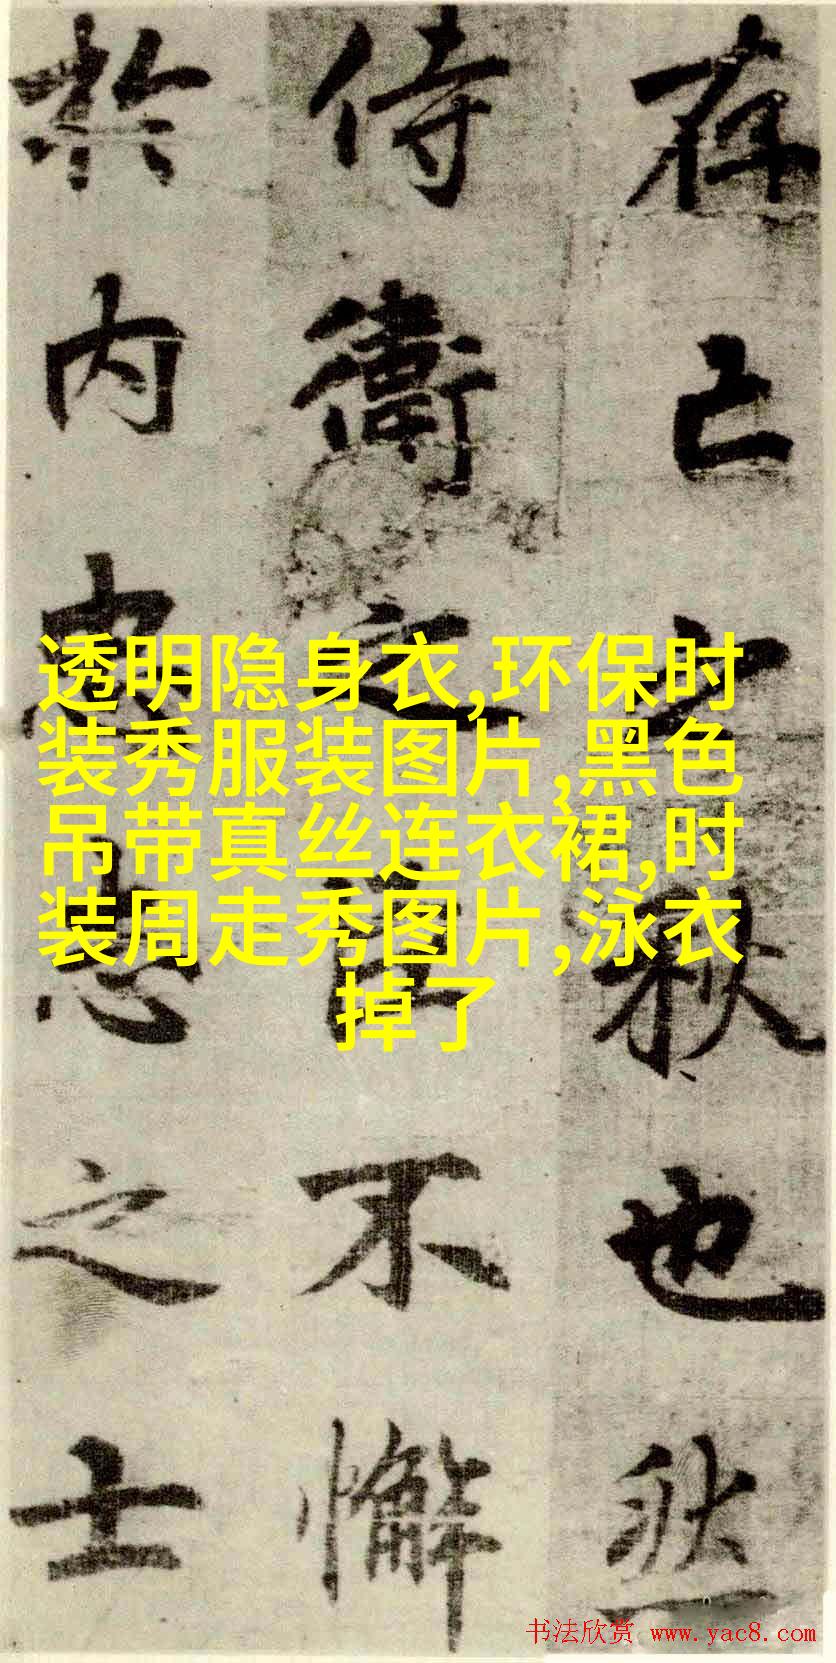 存亡之秋也然
侍衛之臣不懈
於内忠志之士
透明隐身衣,环保时
装秀服装图片,黑色
吊带真丝连衣裙,时
装周走秀图片,泳衣
掉了
书法欣赏 www.yac8.com